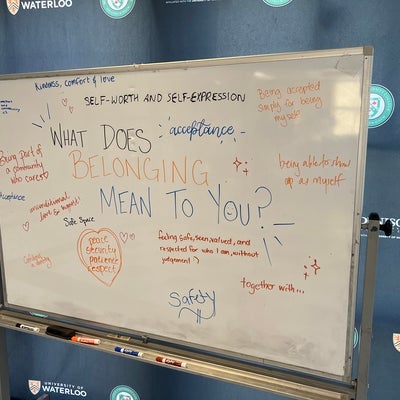 WATERLOO
UNIVERSITY OF
kindness, comfort & love
SELF-WORTH AND SELF-EXPRESSION
Being accepted
simply for being
myself
acceptance
WHAT DOES
BELONGING
MEAN TO YOU?
Being part of
a community
who cares
being able to show
up as myself
Acceptance
unconditional
love & support
Safe Space
peace
security
patience
respect
feeling safe, seen, valued, and
respected for who I am, without
judgement :)
together with...
Safety
UNIVERSITY OF
WATERLOO
UNIVERSITY OF
WATERLOO